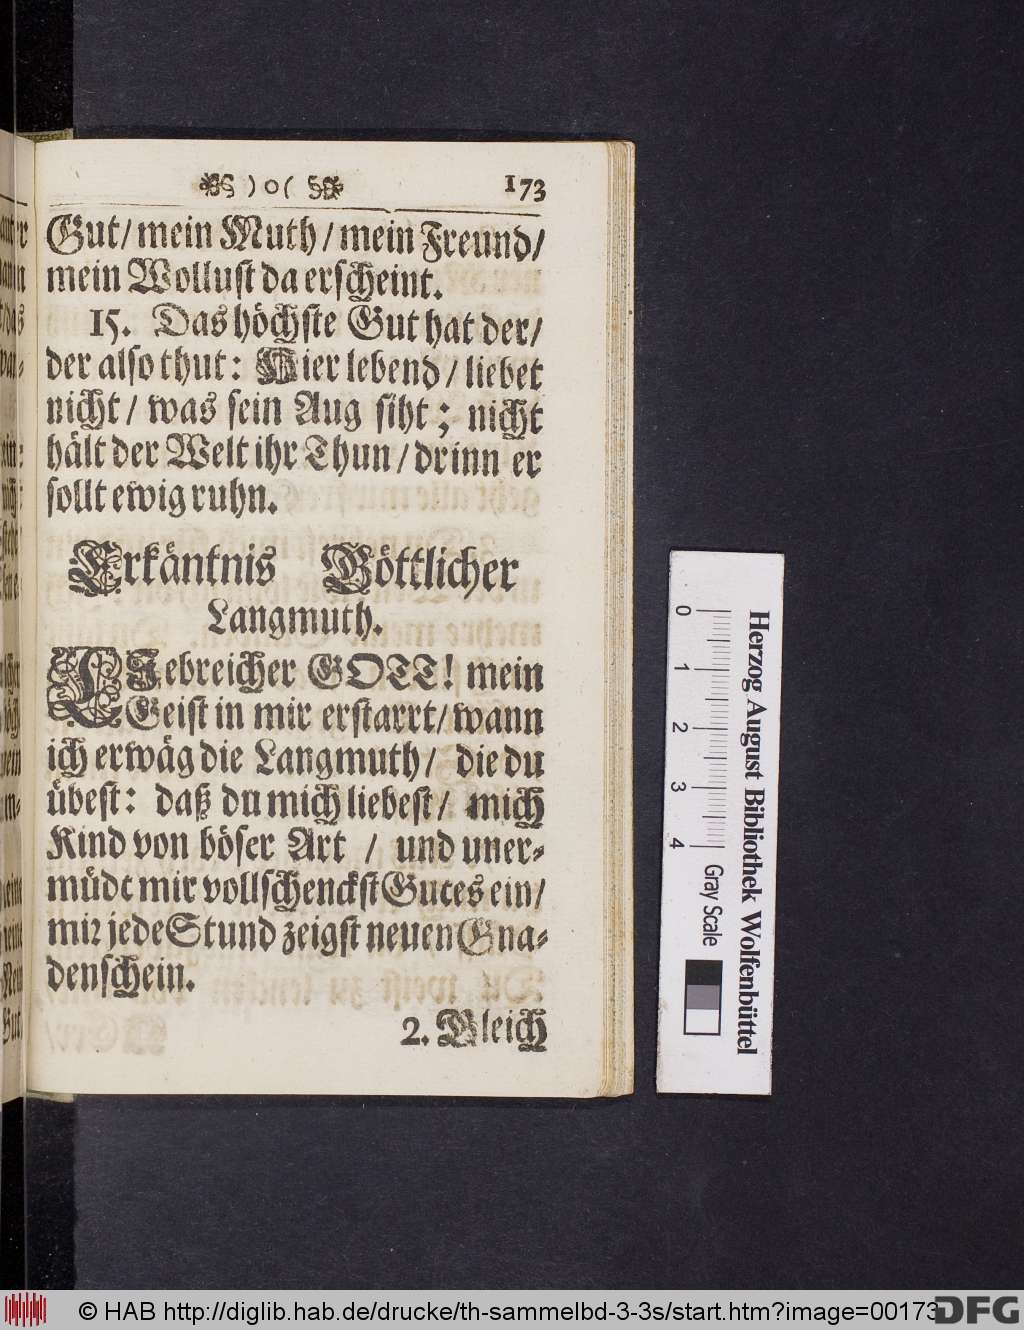 )o( 173
Gut/ mein Muth/ mein Freund/
mein Wollust da erscheint.
15. Das höchste Gut hat der/
der also thut: Hier lebend/ liebet
nicht/ was sein Aug siht; nicht
hält der Welt ihr Thun/ drinn er
sollt ewig ruhn.
Erkäntnis Göttlicher
Langmuth.
LIebreicher GOTT! mein
Geist in mir erstarrt/ wann
ich erwäg die Langmuth/ die du
übest: daß du mich liebest/ mich
Kind von böser Art / und uner-
müdt mir vollschenckst Gutes ein/
mir jede Stund zeigst neuen Gna-
denschein.
2. Gleich
0 1 2 3 4
Gray Scale
Herzog August Bibliothek Wolfenbüttel
© HAB http://diglib.hab.de/drucke/th-sammelbd-3-3s/start.htm?image=00173
DFG